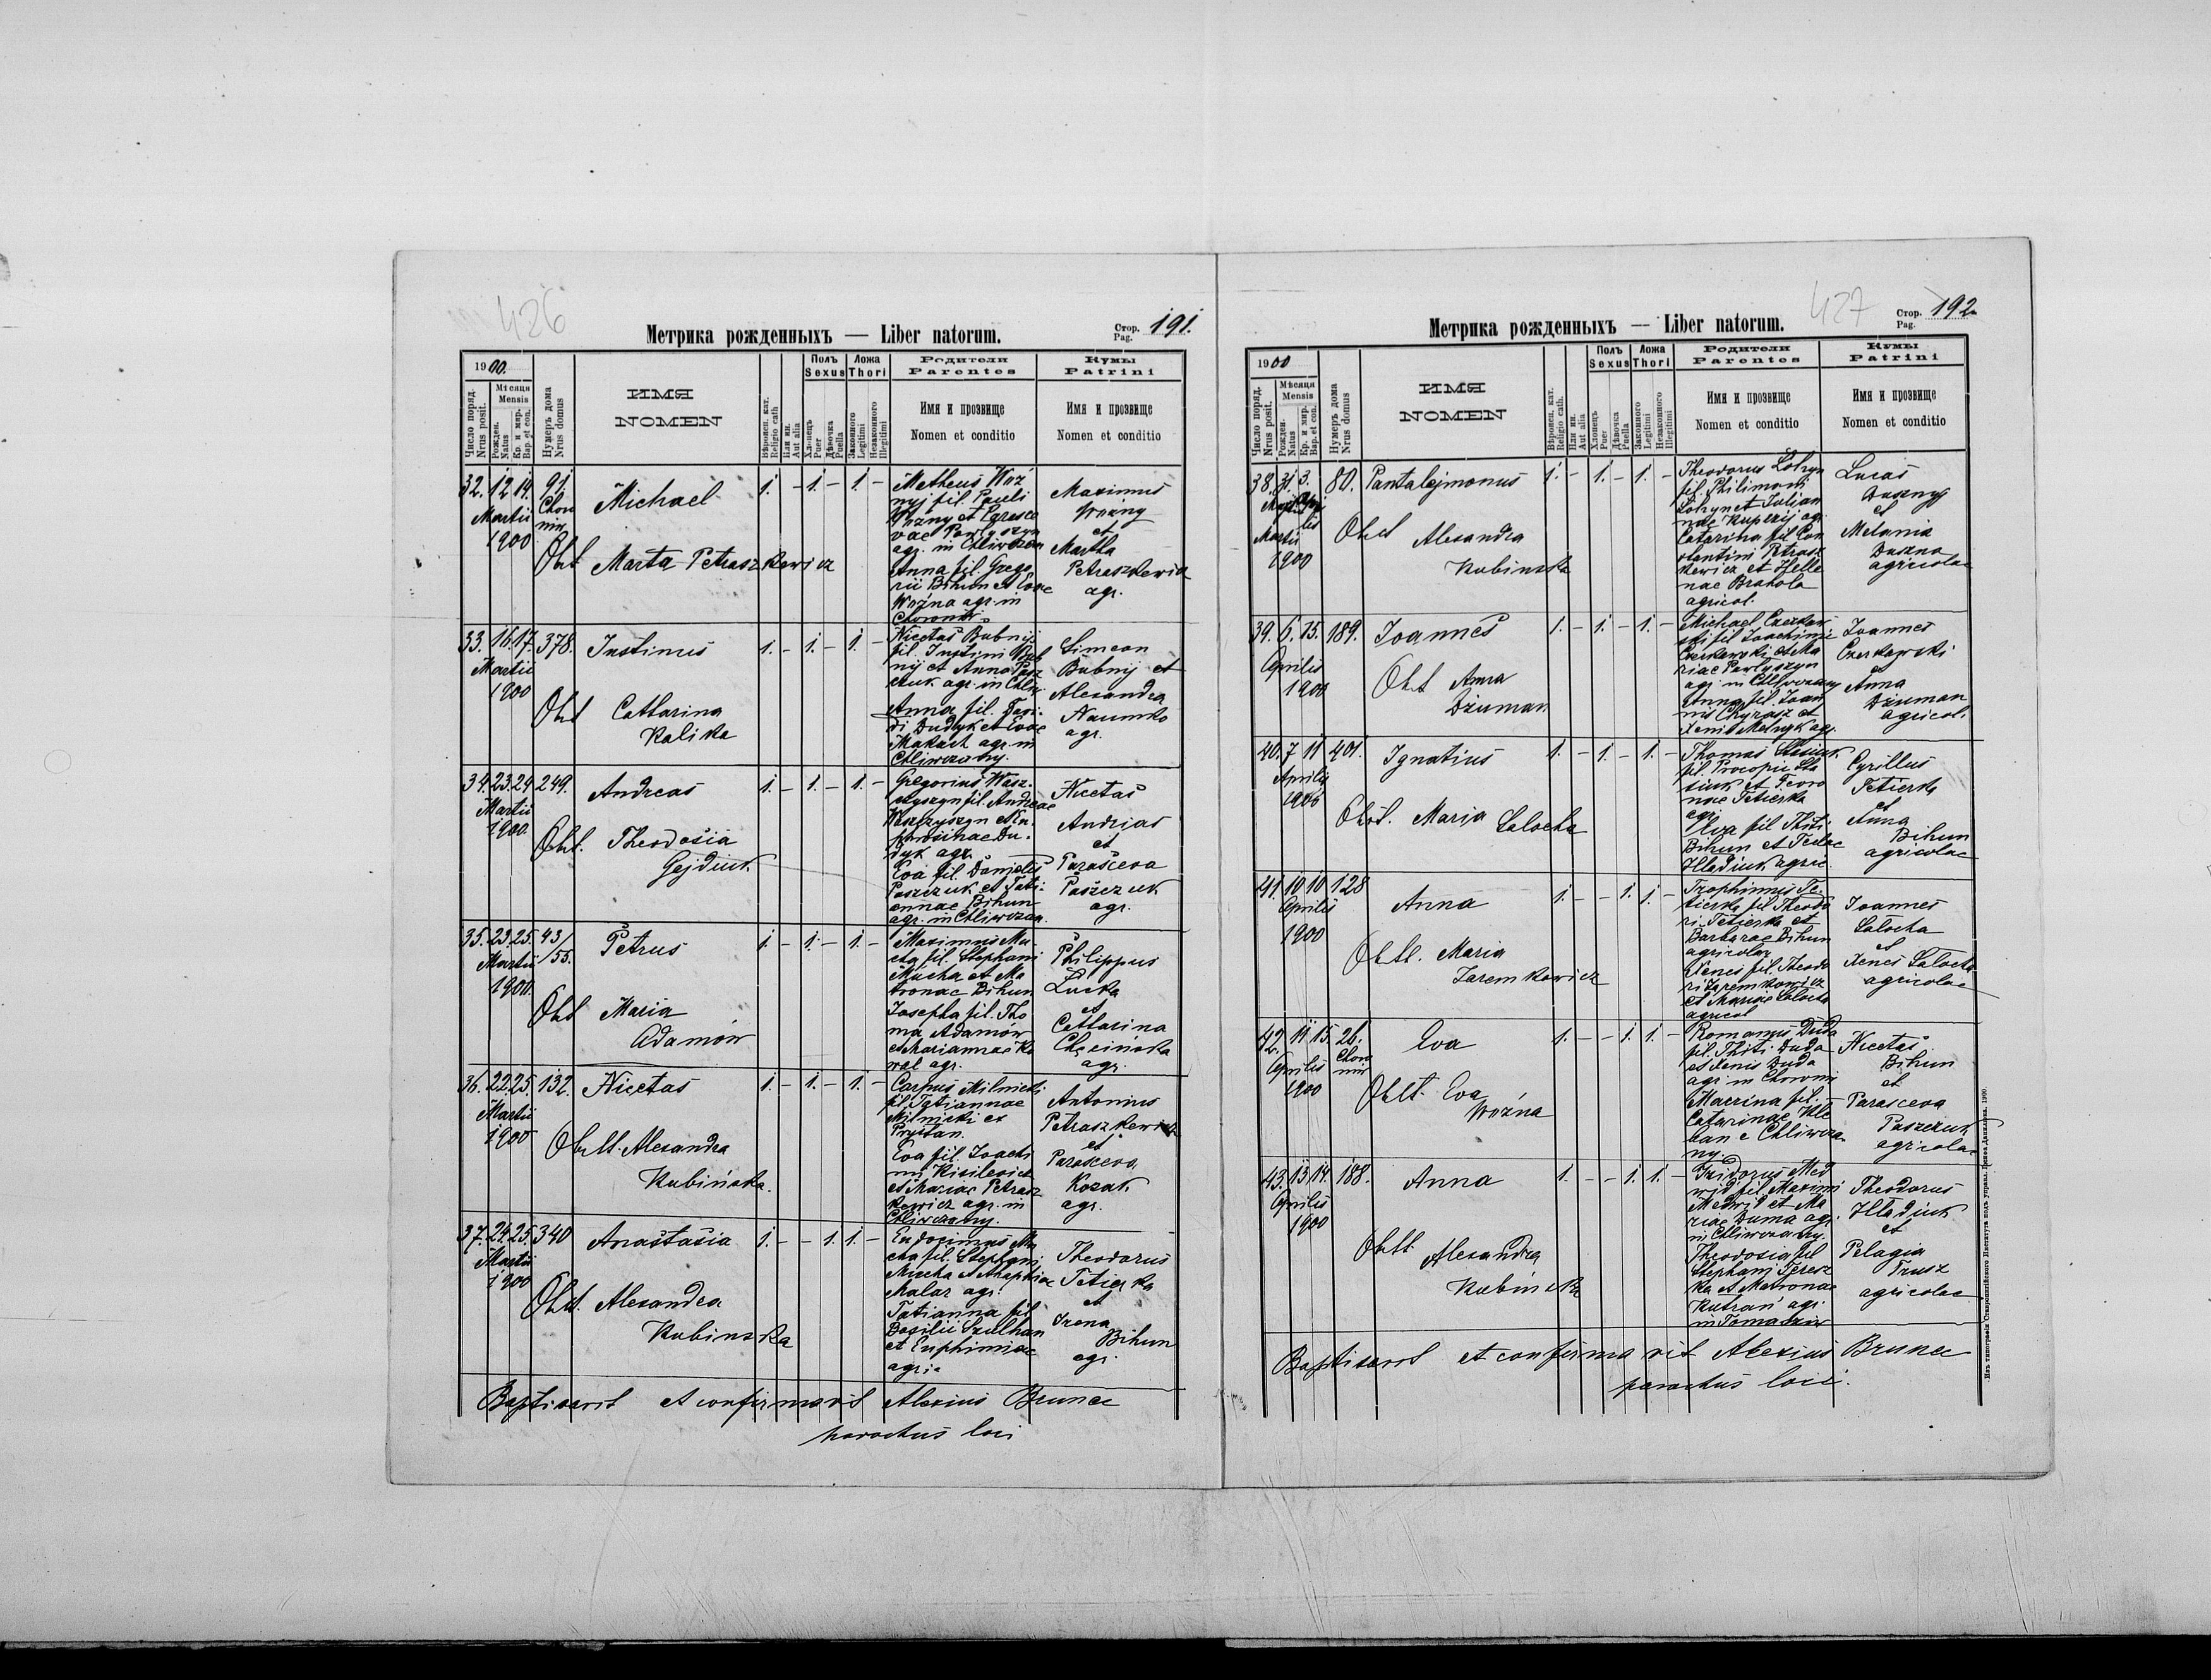 426
Метрика рожденныхъ — Liber natorum.
Стор. Pag. 191.
1900.
Число поряд. Nrus posit.
Мѣсяця Mensis
Рожден. Natus
Кр. и мир. Bap. et con.
Нумеръ дома Nrus domus
ИМЯ
NOMEN
Вѣроисп. кат. Religio cath
Или ин. Aut alia
Полъ Sexus
Хлопецъ Puer
Дѣвочка Puella
Ложа Thori
Законного Legitimi
Незаконного Illegitimi
Родители
Parentes
Имя и прозвище
Nomen et conditio
Кумы
Patrini
Имя и прозвище
Nomen et conditio
32. 12 14. Martii 1900 91. Michael 1. - 1. - 1. -
Obst Marta Petraszkewicz
Matheus Woź
nyj fil. Pauli
Wozny et Parasce
vae Pawłyszyn
agr. in Chliwczan
Anna fil. Grego
rii Bihun et Evae
Woźna agr. in
Maximus
Wozny
et
Martha
Petraszkewicz
agr.
33. 16. 17. Martii 1900 378. Justinus 1. - 1. - 1. -
Obst Catharina
Kalika
Nicetas Bubnij
fil. Justini Bub
nij et Anna Pasz
czuk agr. in Chliw
Anna fil.
Dudyk et Evae
agr. in
Chliwczany.
Simeon
Bubnij et
Alexandra
Naumko
agr.
34. 23. 24 Martii 1900. 249. Andreas 1. - 1. - 1. -
Obst. Theodosia
Gejdiuk
Gregorius Wasz
czyszyn fil. Andreae
Waszczyszyn et Eu
phrosinae Du
dyk agr.
Eva fil. Danielis
Paszczuk et Tati
annae Bihun
agr. in Chliwczan.
Nicetas
Andrias
et
Parasceva
Paszczuk
agr.
35. 23. 25. Martii 1900. 43/55. Petrus 1. - 1. - 1. -
Obst Maria
Adamów
Maximus Mu
cha fil. Stephani
Mucha et Ma
tronae Bihun
Josepha fil. Tho
ma Adamów
et Mariannae Ko
wal agr.
Philippus
Lucka
et
Catharina
Chęcińska
agr.
36. 22. 25. Martii 1900 132. Nicetas 1. - 1. - 1. -
Obstt. Alexandra
Kubińska.
Carpus Milnicki
fil. Tatiannae
Milnicki ex
Prystan.
Eva fil. Joachi
mi Kisilevicz
et Mariae Petrasz
kewicz agr. in
Chliwczany.
Antonius
Petraszkewicz
et
Parasceva
Kozak
agr.
37. 24. 25. Martii 1900 340 Anastasia 1. - - 1. 1. -
Obst. Alexandra
Kubinska
Eudocimus Mu
cha fil. Stephani
Mucha et Ahaphiae
Malar agr.
Tatianna fil.
Basilii Szulhan
et Euphimiae
agric
Theodorus
Tetierka
et
Irena
Bihun
agr.
Baptisavit et confirmavit Alexius Brunec
parochus loci
427
Метрика рожденныхъ — Liber natorum.
Стор. Pag. 192
1900
Число поряд. Nrus posit.
Мѣсяця Mensis
Рожден. Natus
Кр. и мир. Bap. et con.
Нумеръ дома Nrus domus
ИМЯ
NOMEN
Вѣроисп. кат. Religio cath.
Или ин. Aut alia
Полъ Sexus
Хлопецъ Puer
Дѣвочка Puella
Ложа Thori
Законного Legitimi
Незаконного Illegitimi
Родители
Parentes
Имя и прозвище
Nomen et conditio
Кумы
Patrini
Имя и прозвище
Nomen et conditio
38. 31. 3. Martii 1900 80. Pantalejmonus 1. - 1. - 1. -
Obst Alexandra
Kubinska
Theodorus Lohyn
fil. Philimoni
Lohyn et Julian
nae Kuperij agr.
Catarina fil. Con
stantini Petrasz
kewicz et Hele
nae Brahola
agricol.
Lucas
Duszny
et
Melania
Duszna
agricolae
39. 6. 15. Aprilis 1900 189. Joannes 1. - 1. - 1. -
Obst Anna
Dżuman
Michael Czerkaw
ski fil Joachimi
Czerkawski et Ma
riae Pawłyszyn
agr. in Chliwczany
Anna fil. Joan
nis Chyrasz et
Xenis Melnyk agr.
Joannes
Czerkawski
Anna
Dżuman
agricol.
40. 7 11 Aprilis 1900 401. Ignatius 1. - 1 - 1. -
Obst. Maria Salocha
Thomas Stasiuk
fil. Procopii Sta
siuk et Fevro
niae Tetierka
agr
Eva fil Thiti
Bihun et Teclae
Illadiuk agric.
Cyrillus
Tetierka
et
Anna
Bihun
agricolae
41. 10 10 Aprilis 1900 128 Anna 1. - - 1. 1. -
Obstt. Maria
Jaremkowicz
Trophimus Te
tierka fil Theodo
ri Tetierka et
Barbarae Bihun
agricolae
Xenis fil. Theodo
ri Jaremkowicz
et Mariae Salocha
agricol
Joannes
Salocha
et
Xenis Salocha
agricolae
42. 11 15. Aprilis 1900 26. Eva 1. - - 1. 1. -
Obstt. Eva
Woźna
Romanus Duda
fil. Thiti Duda
et Xenis Duda
agr in Choronie
Macrina fil.
Catarinae Hle
ban e Chliwcza
ny.
Nicetas
Bihun
et
Parasceva
Paszczuk
agricolae
43. 13 14. Aprilis 1900 188. Anna 1. - - 1. 1. -
Obstt. Alexandra
Kubinska
Isidorus Med
wid fil. Maximi
Medwid et Ma
riae Duma agr.
in Chliwczany.
Theodosia fil
Stephani Teresz
ka et Matronae
Kutran agr.
in Tomaszów
Theodorus
Illadiuk
et
Pelagia
Trusz
agricolae
Baptisavit et confirmavit Alexius Brunec
parochus loci.